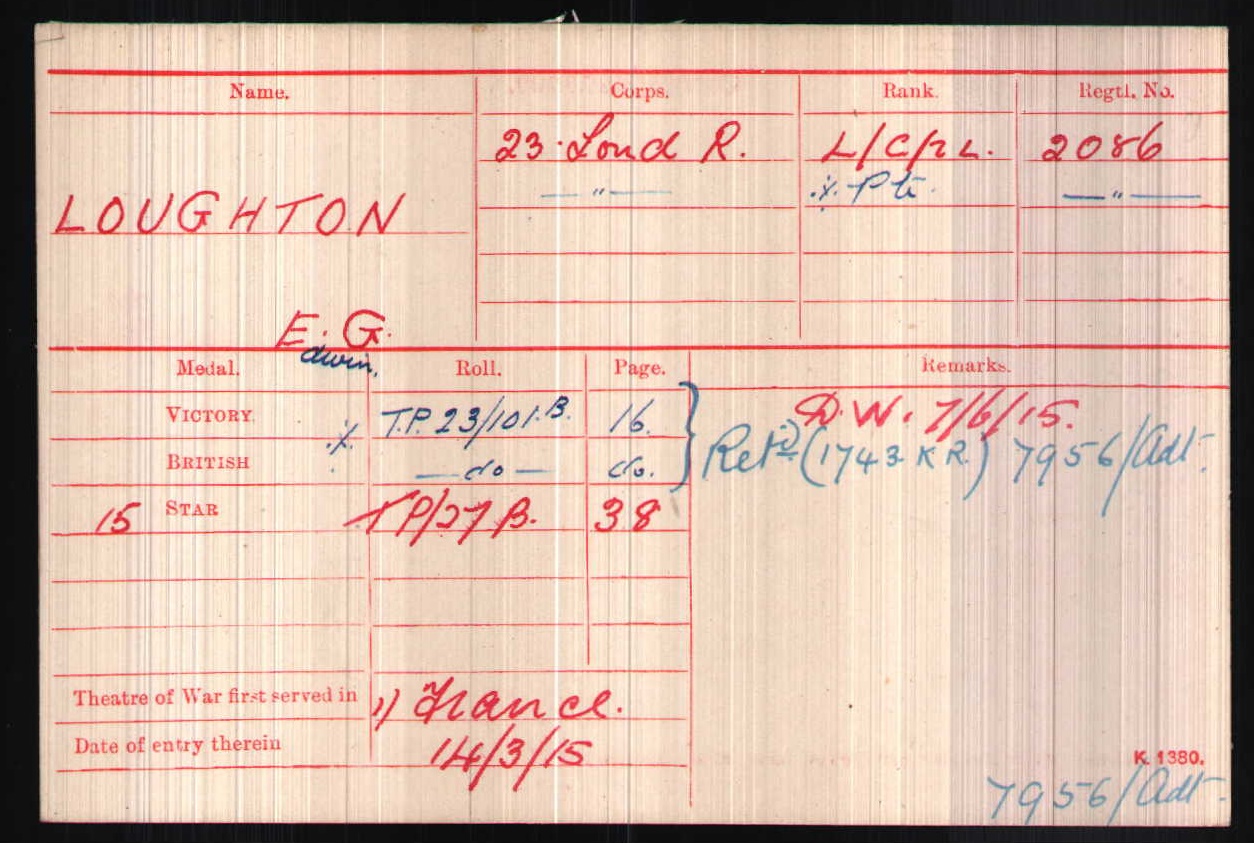 Name. Corps. Rank. Regtl. No.
23. Lond R. L/C/PL. 2086
—"— ·/. Pte. —"—
LOUGHTON
E. G.
dwin.
Medal. Roll. Page. Remarks.
VICTORY T.P. 23/101.B. 16. D.W. 7/6/15.
·/. BRITISH —do— do. } Retd (1743 K R.) 7956/Adt.
15 STAR TP/27 B. 38
Theatre of War first served in 1) France.
Date of entry therein 14/3/15
K. 1380.
7956/Adt.